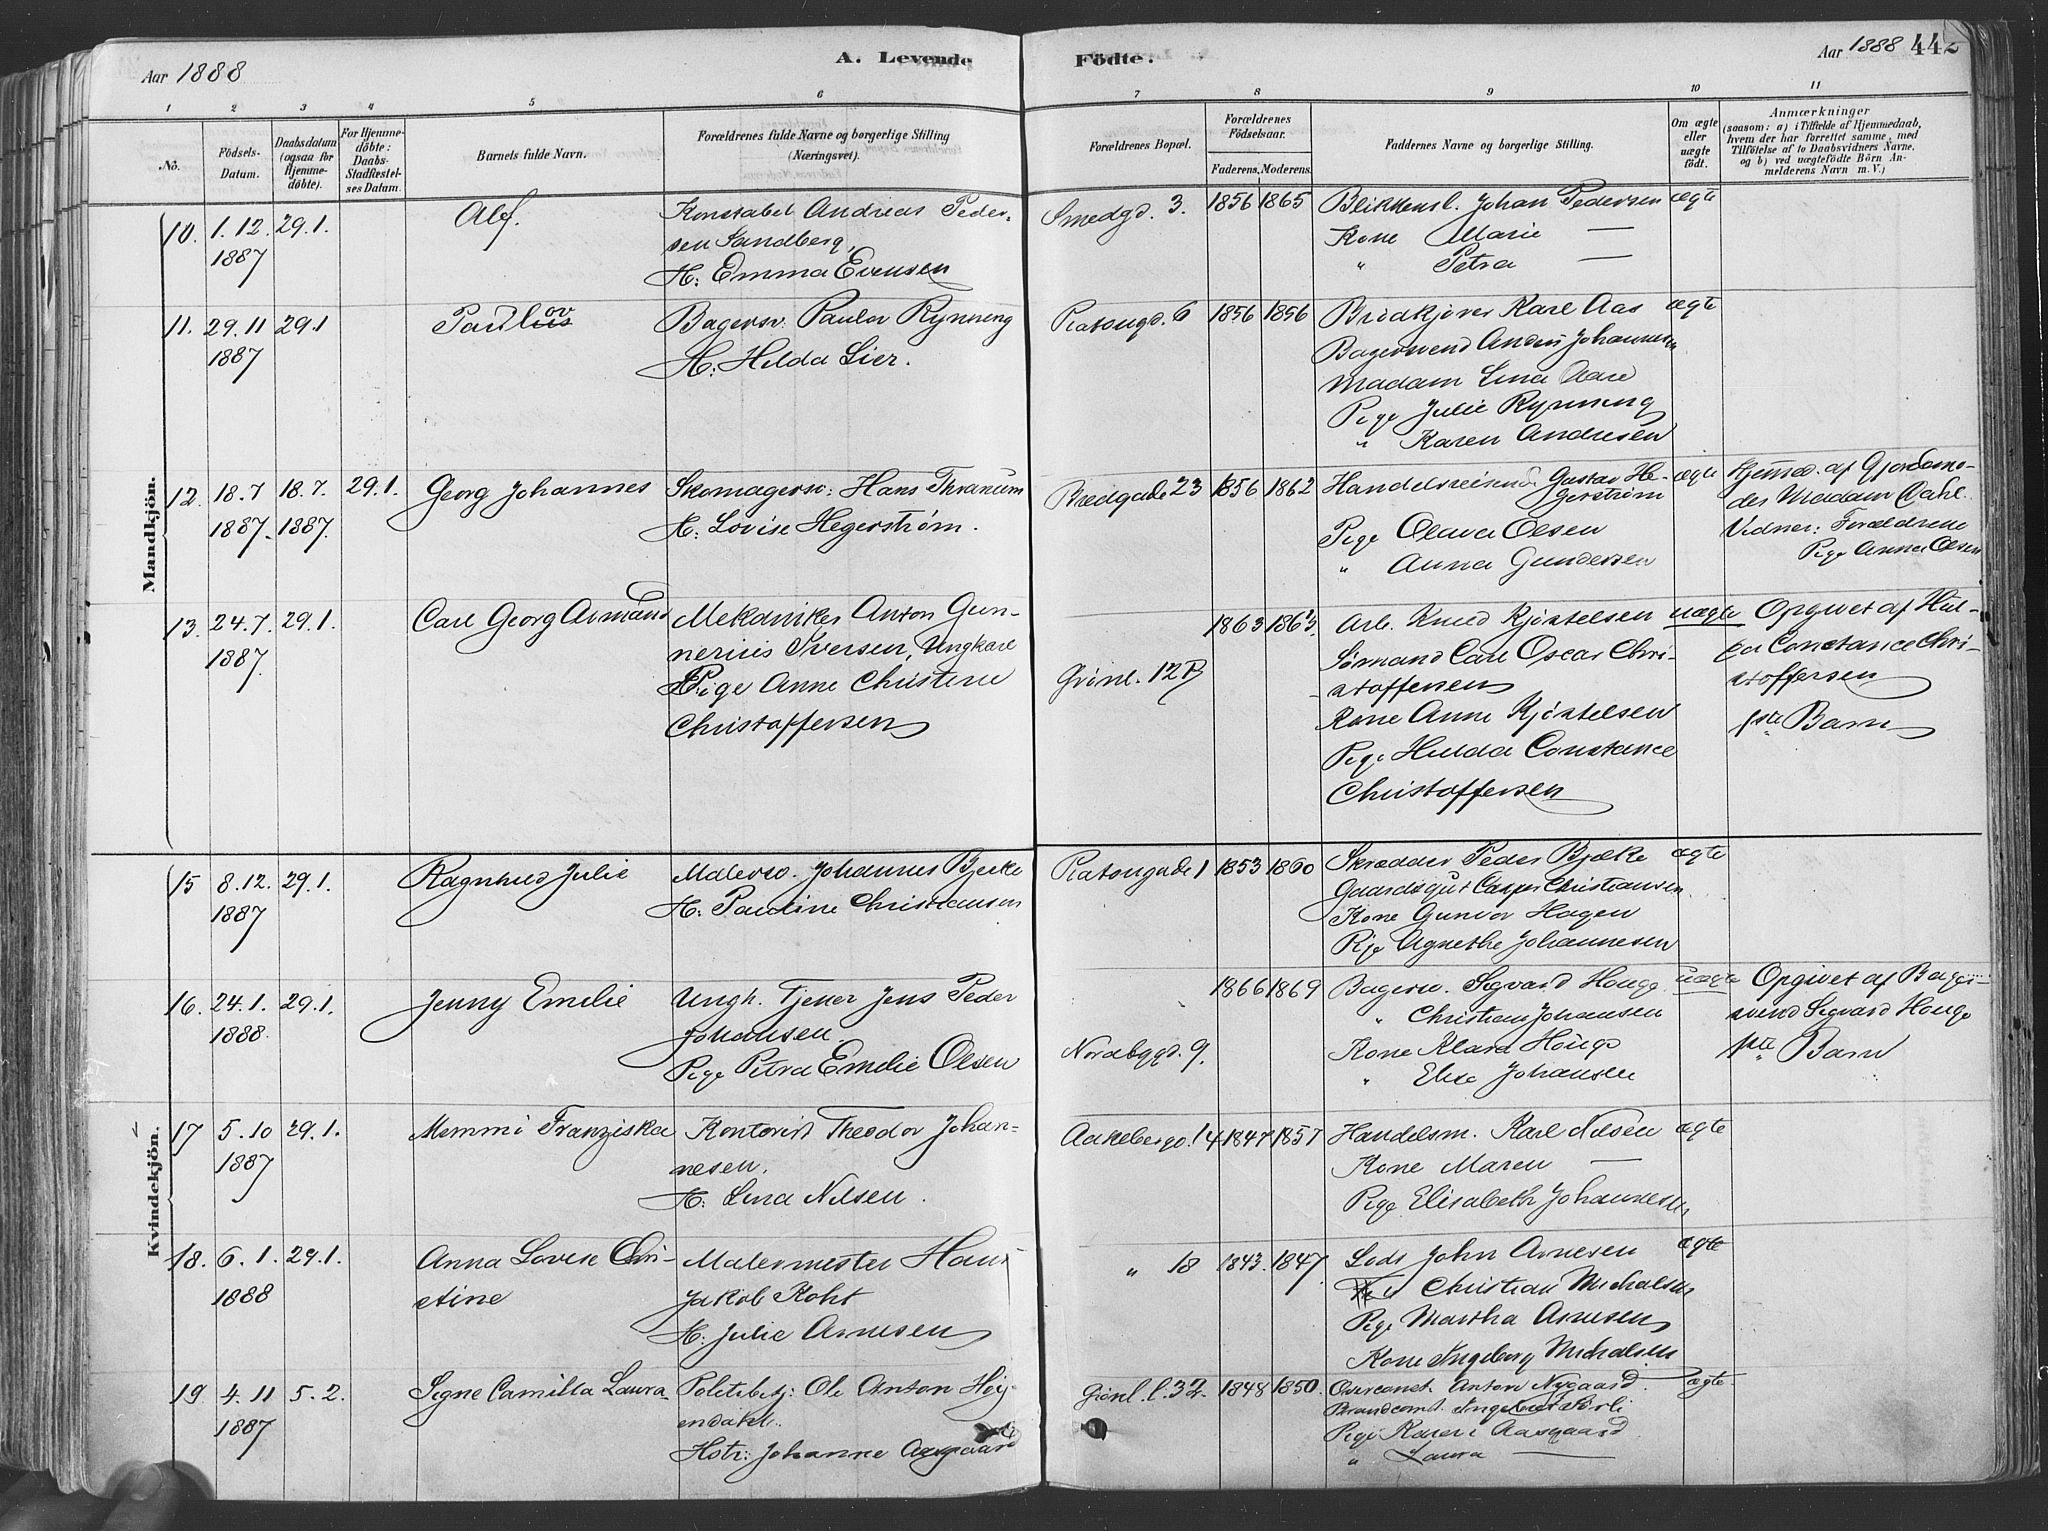 Aar 1888
A. Levende
Födte.
Aar 1888
442
1 2 3 4 5 6 7 8 9 10 11
No.
Födsels-
Datum.
Daabsdatum
(ogsaa for
Hjemme-
döbte).
For Hjemme-
döbte:
Daabs-
Stadfæstel-
ses Datum.
Barnets fulde Navn.
Forældrenes fulde Navne og borgerlige Stilling
(Næringsvei).
Forældrenes Bopæl.
Forældrenes
Födselsaar.
Faderens. Moderens.
Faddernes Navne og borgerlige Stilling.
Om ægte
eller
uægte
födt.
Anmærkninger
(saasom: a) i Tilfælde af Hjemmedaab,
hvem der har forrettet samme, med
Tilföielse af to Daabsvidners Navne,
og b) ved uægtefödte Börn An-
melderens Navn m. V.)
Mandkjön.
10. 1. 12. 29.1.
1887
Alf.
Konstabel Andreas Peder-
sen Sandberg,
H: Emma Evensen
Smedgd. 3.
1856 1865
Blikkensl. Johan Pedersen
Kone Marie —
" Petra —
ægte
11. 29.11 29.1
1887
Paulus
ov
Bagersv. Paulov Rynning
H: Hilda Lier.
Platougd. 6
1856 1856
Brødkjører Karl Aas
Bagersvend Anders Johannesen
Madam Lina Aase
Pige Julie Rynning
" Karen Andresen
ægte
12. 18.7 18.7. 29.1.
1887. 1887.
Georg Johannes
Skomagersv: Hans Thranum
H: Lovise Hegerstrøm.
Bredgade 23
1856 1862
Handelsreisend Gustav He-
gerstrøm
Pige Olava Olsen
" Anna Gundersen
ægte
Hjemmed. af Gjordemo-
der Madam Dahl.
Vidner: Forældrene
Pige Anna Olsen
13. 24.7. 29.1.
1887.
Carl Georg Armand
Mekaniker Anton Gun-
nerius Iversen, Ungkarl
Pige Anne Christine
Christoffersen
Grønl. 12 B
1863 1863.
Arb. Knud Kjøstelsen
Sømand Carl Oscar Chri-
stoffersen
Kone Anne Kjøstelsen
Pige Hulda Constance
Christoffersen
uægte
Opgivet af Hul-
da Constance Chri-
stoffersen
1ste Barn
Kvindekjön.
15 8.12. 29.1.
1887
Ragnhild Julie
Malersv. Johannes Bjerke
H: Pauline Christiansen
Platougade 1
1853 1860
Skrædder Peder Bjerke
Gaardsgut Casper Christiansen
Kone Gunvor Hagen
Pige Agnethe Johannesen
ægte
16. 24.1. 29.1.
1888.
Jenny Emilie
Ungk. Tjener Jens Peder
Johansen.
Pige Petra Emilie Olsen
Nordbygd. 9.
1866 1869
Bagersv. Sigvard Houge
" Christian Johansen
Kone Klara Houge
" Elise Johansen
uægte
Opgivet af Bager-
svend Sigvard Houge
1ste Barn
17 5.10 29.1.
1887
Memmi Franziska
Kontorist Theodor Johan-
nesen.
H: Lina Nilsen.
Aakebergv. 14
1847 1851
Handelsm. Karl Nilsen
Kone Maren —
Pige Elisabeth Johannesen
ægte
18. 6.1. 29.1.
1888
Anna Lovise Chri-
stine
Malermester Hans
Jakob Koht
H: Julie Arnesen
" 18
1843. 1847.
Lods John Arnesen
" Christian Michalsen
Pige Martha Arnesen
Kone Ingeborg Michalsen
ægte
19. 4.11 5.2.
1887
Signe Camilla Laura
Politibetj: Ole Anton Høy-
endahl.
Hstr: Johanne Aasgaard
Grønl. l. 32.
1848 1850.
Overconst. Anton Nygaard.
Brandconst. Sørli
Pige Karen Aasgaard
" Laura —
ægte